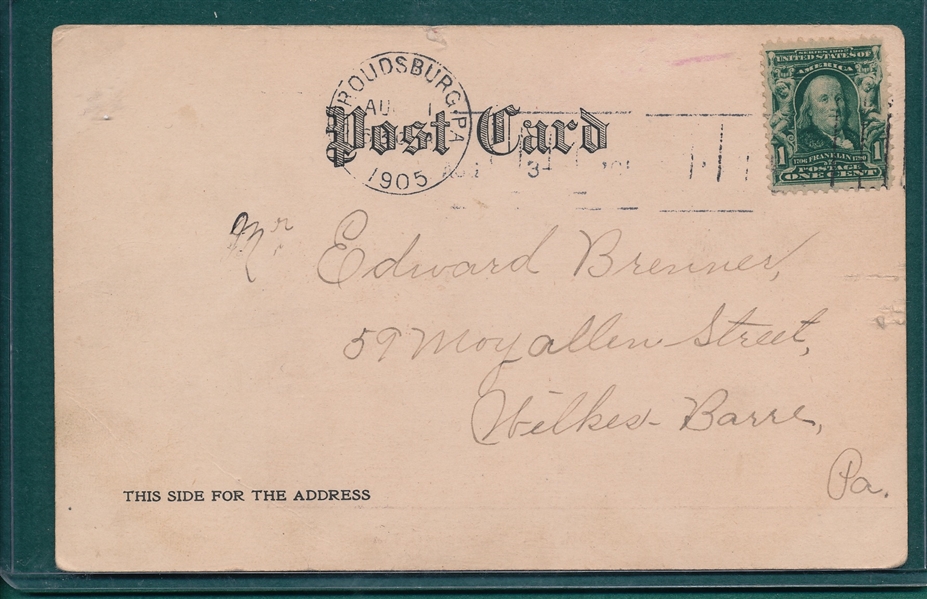 ROUDSBURG, PA
AU 1
1905
Post Card
AUG 3-
SERIES 1902
UNITED STATES OF
AMERICA
1 1
1706 FRANKLIN 1790
POSTAGE
ONE CENT
Mr Edward Brenner,
59 Moyallen Street,
Wilkes-Barre,
Pa.
THIS SIDE FOR THE ADDRESS